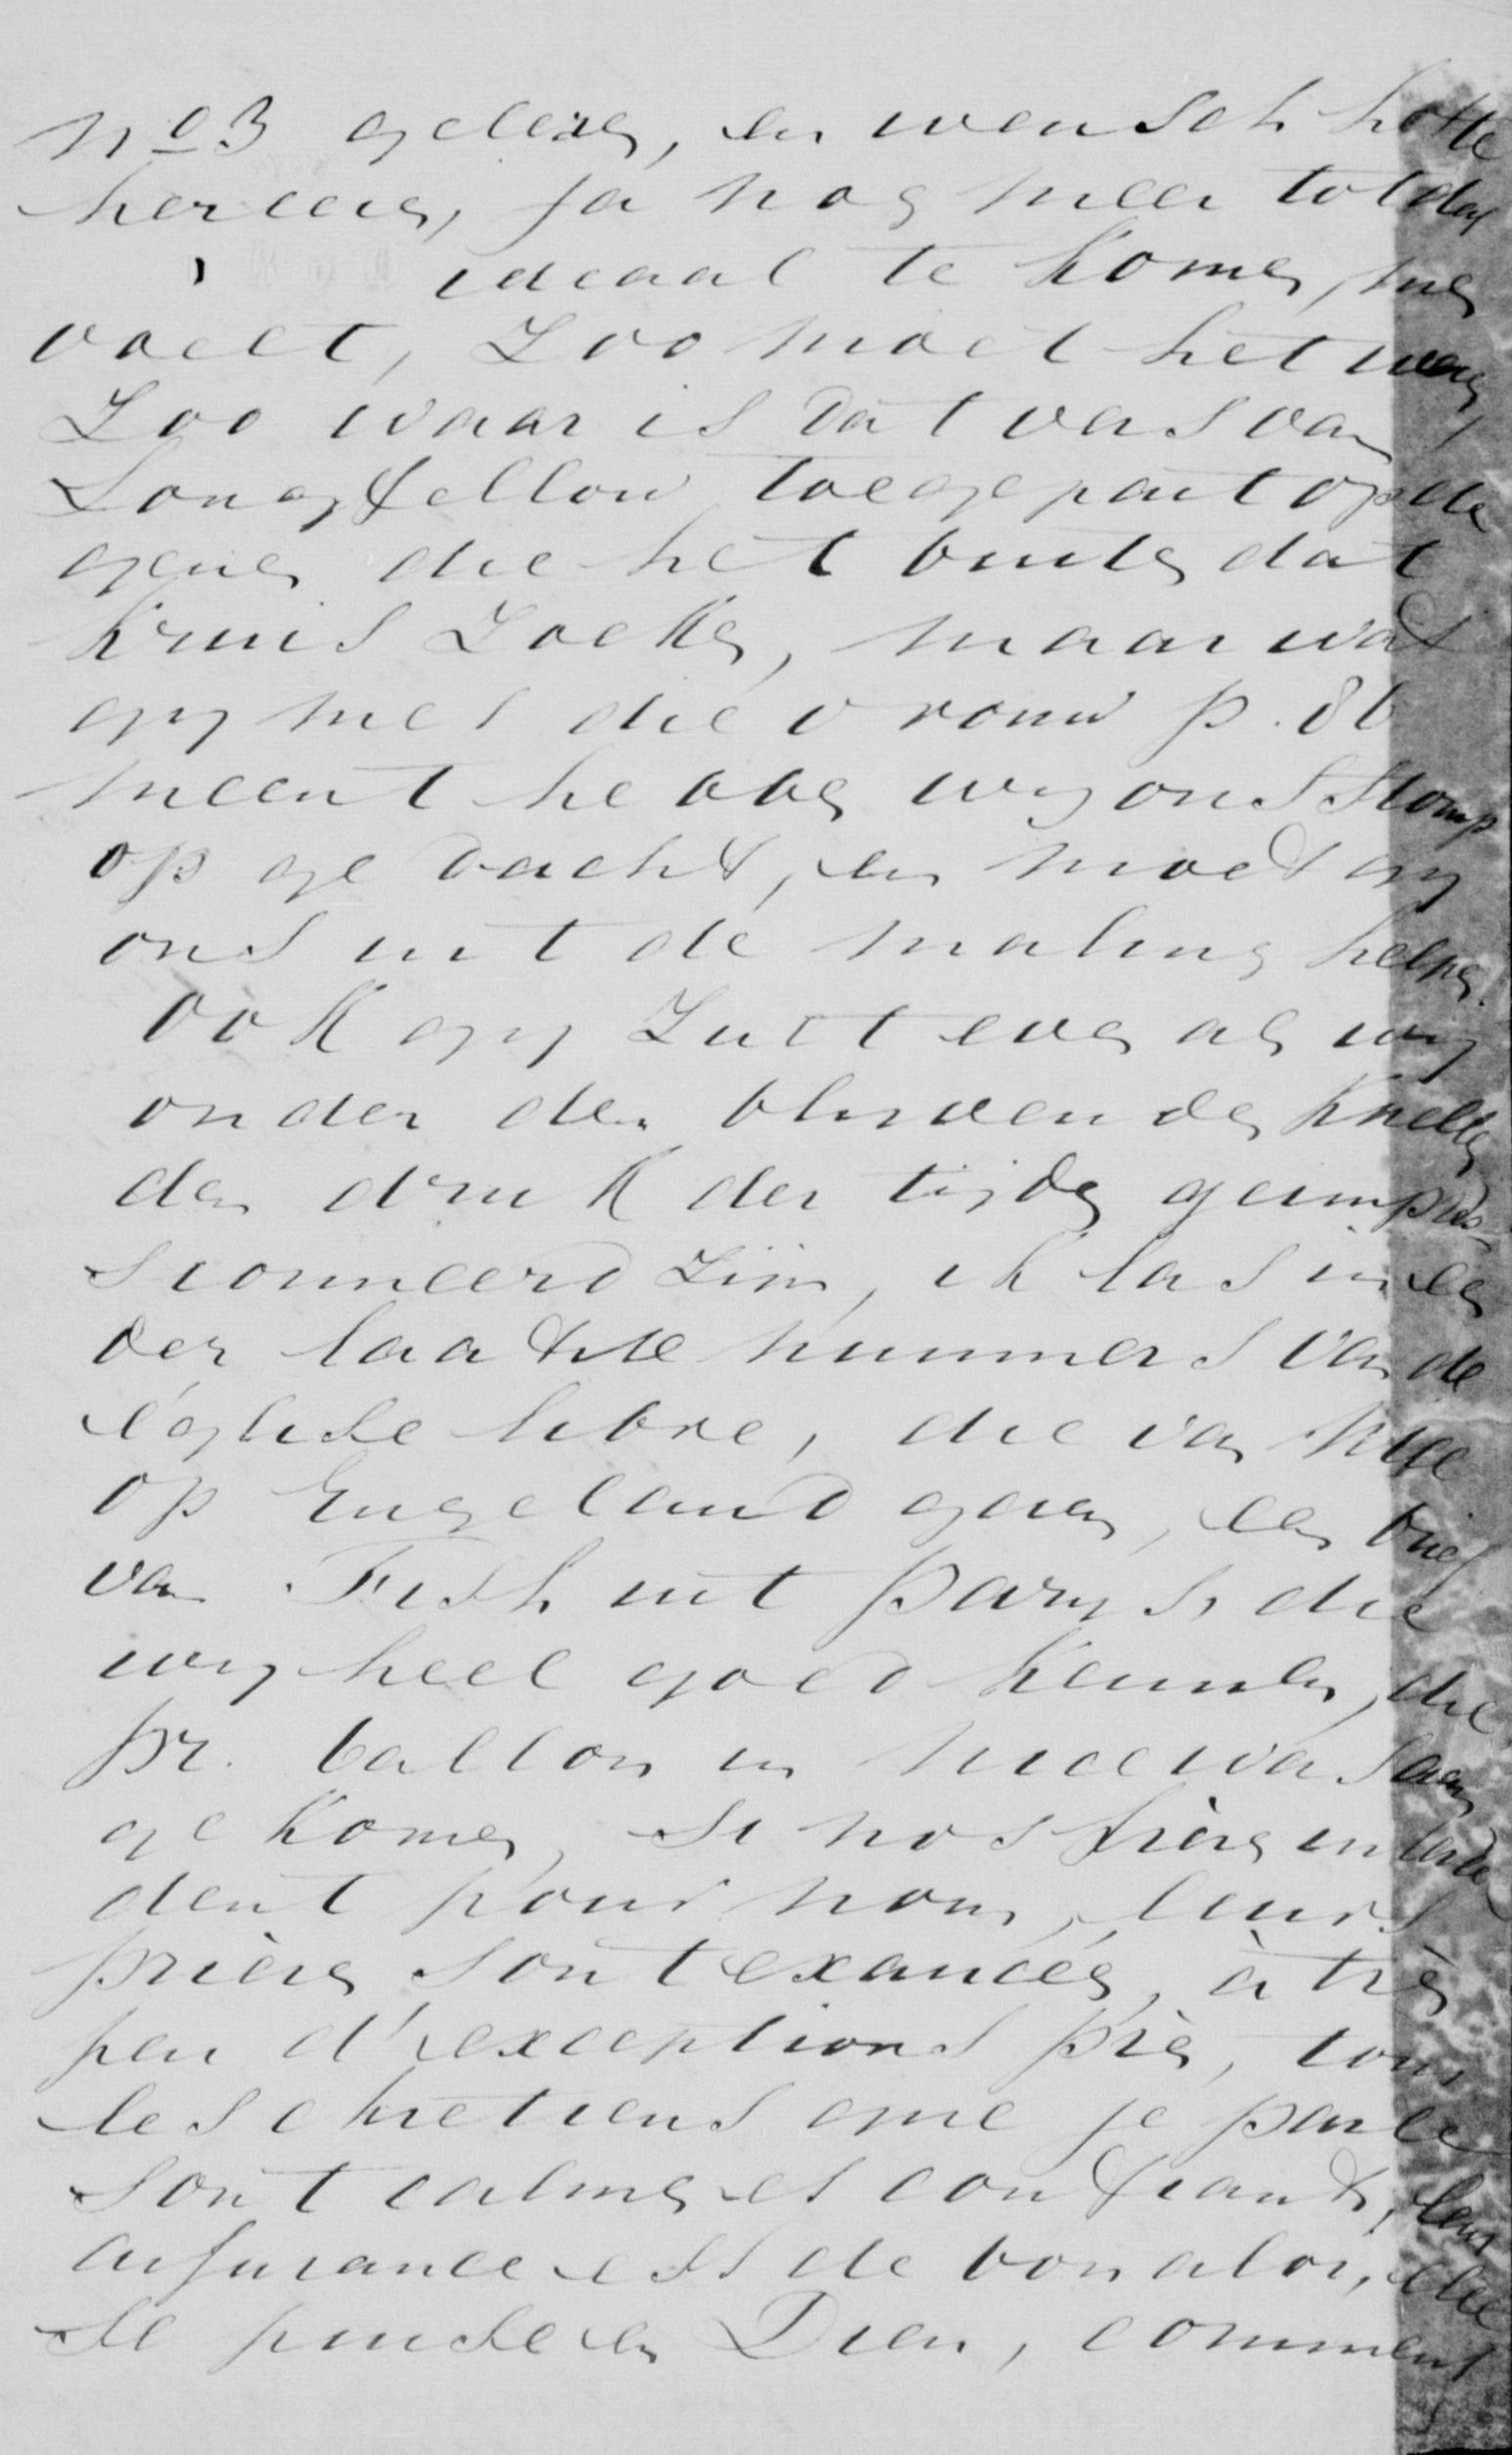 No 3 gelezen, en wensch hotte
herleen, ja nog meer tot dat
ideaal te komen, men
voelt, Zoo moet het wezen,
Zoo waar is dat vers van
Longfellow toegepast op de
genen die het buiten dat
kruis zoeken, maar wat
gy met die vrouw p. 86
meent hebben wy ons stomp
op gedacht, en moet gy
ons uit de maling helpen.
ook gy Zult even als wy
onder den blyvenden knellen
den druk der tijden geimpres
sionneerd Zijn, ik las in een
der laatste nummers van de
l'église libre, die van Nice
op Engeland gaan, een brief
van Fisch uit Parys, die
wy heel goed kennen, die
pr. ballon in Nice was aan
gekomen, si nos frères interce
dent pour nous, leurs
prières sont exaucées, à très
peu d'exceptions près, tous
les chretiens que je parle
sont calmes et confiants, leur
assurance est de bon aloi, elle
se puise en Dieu, comment